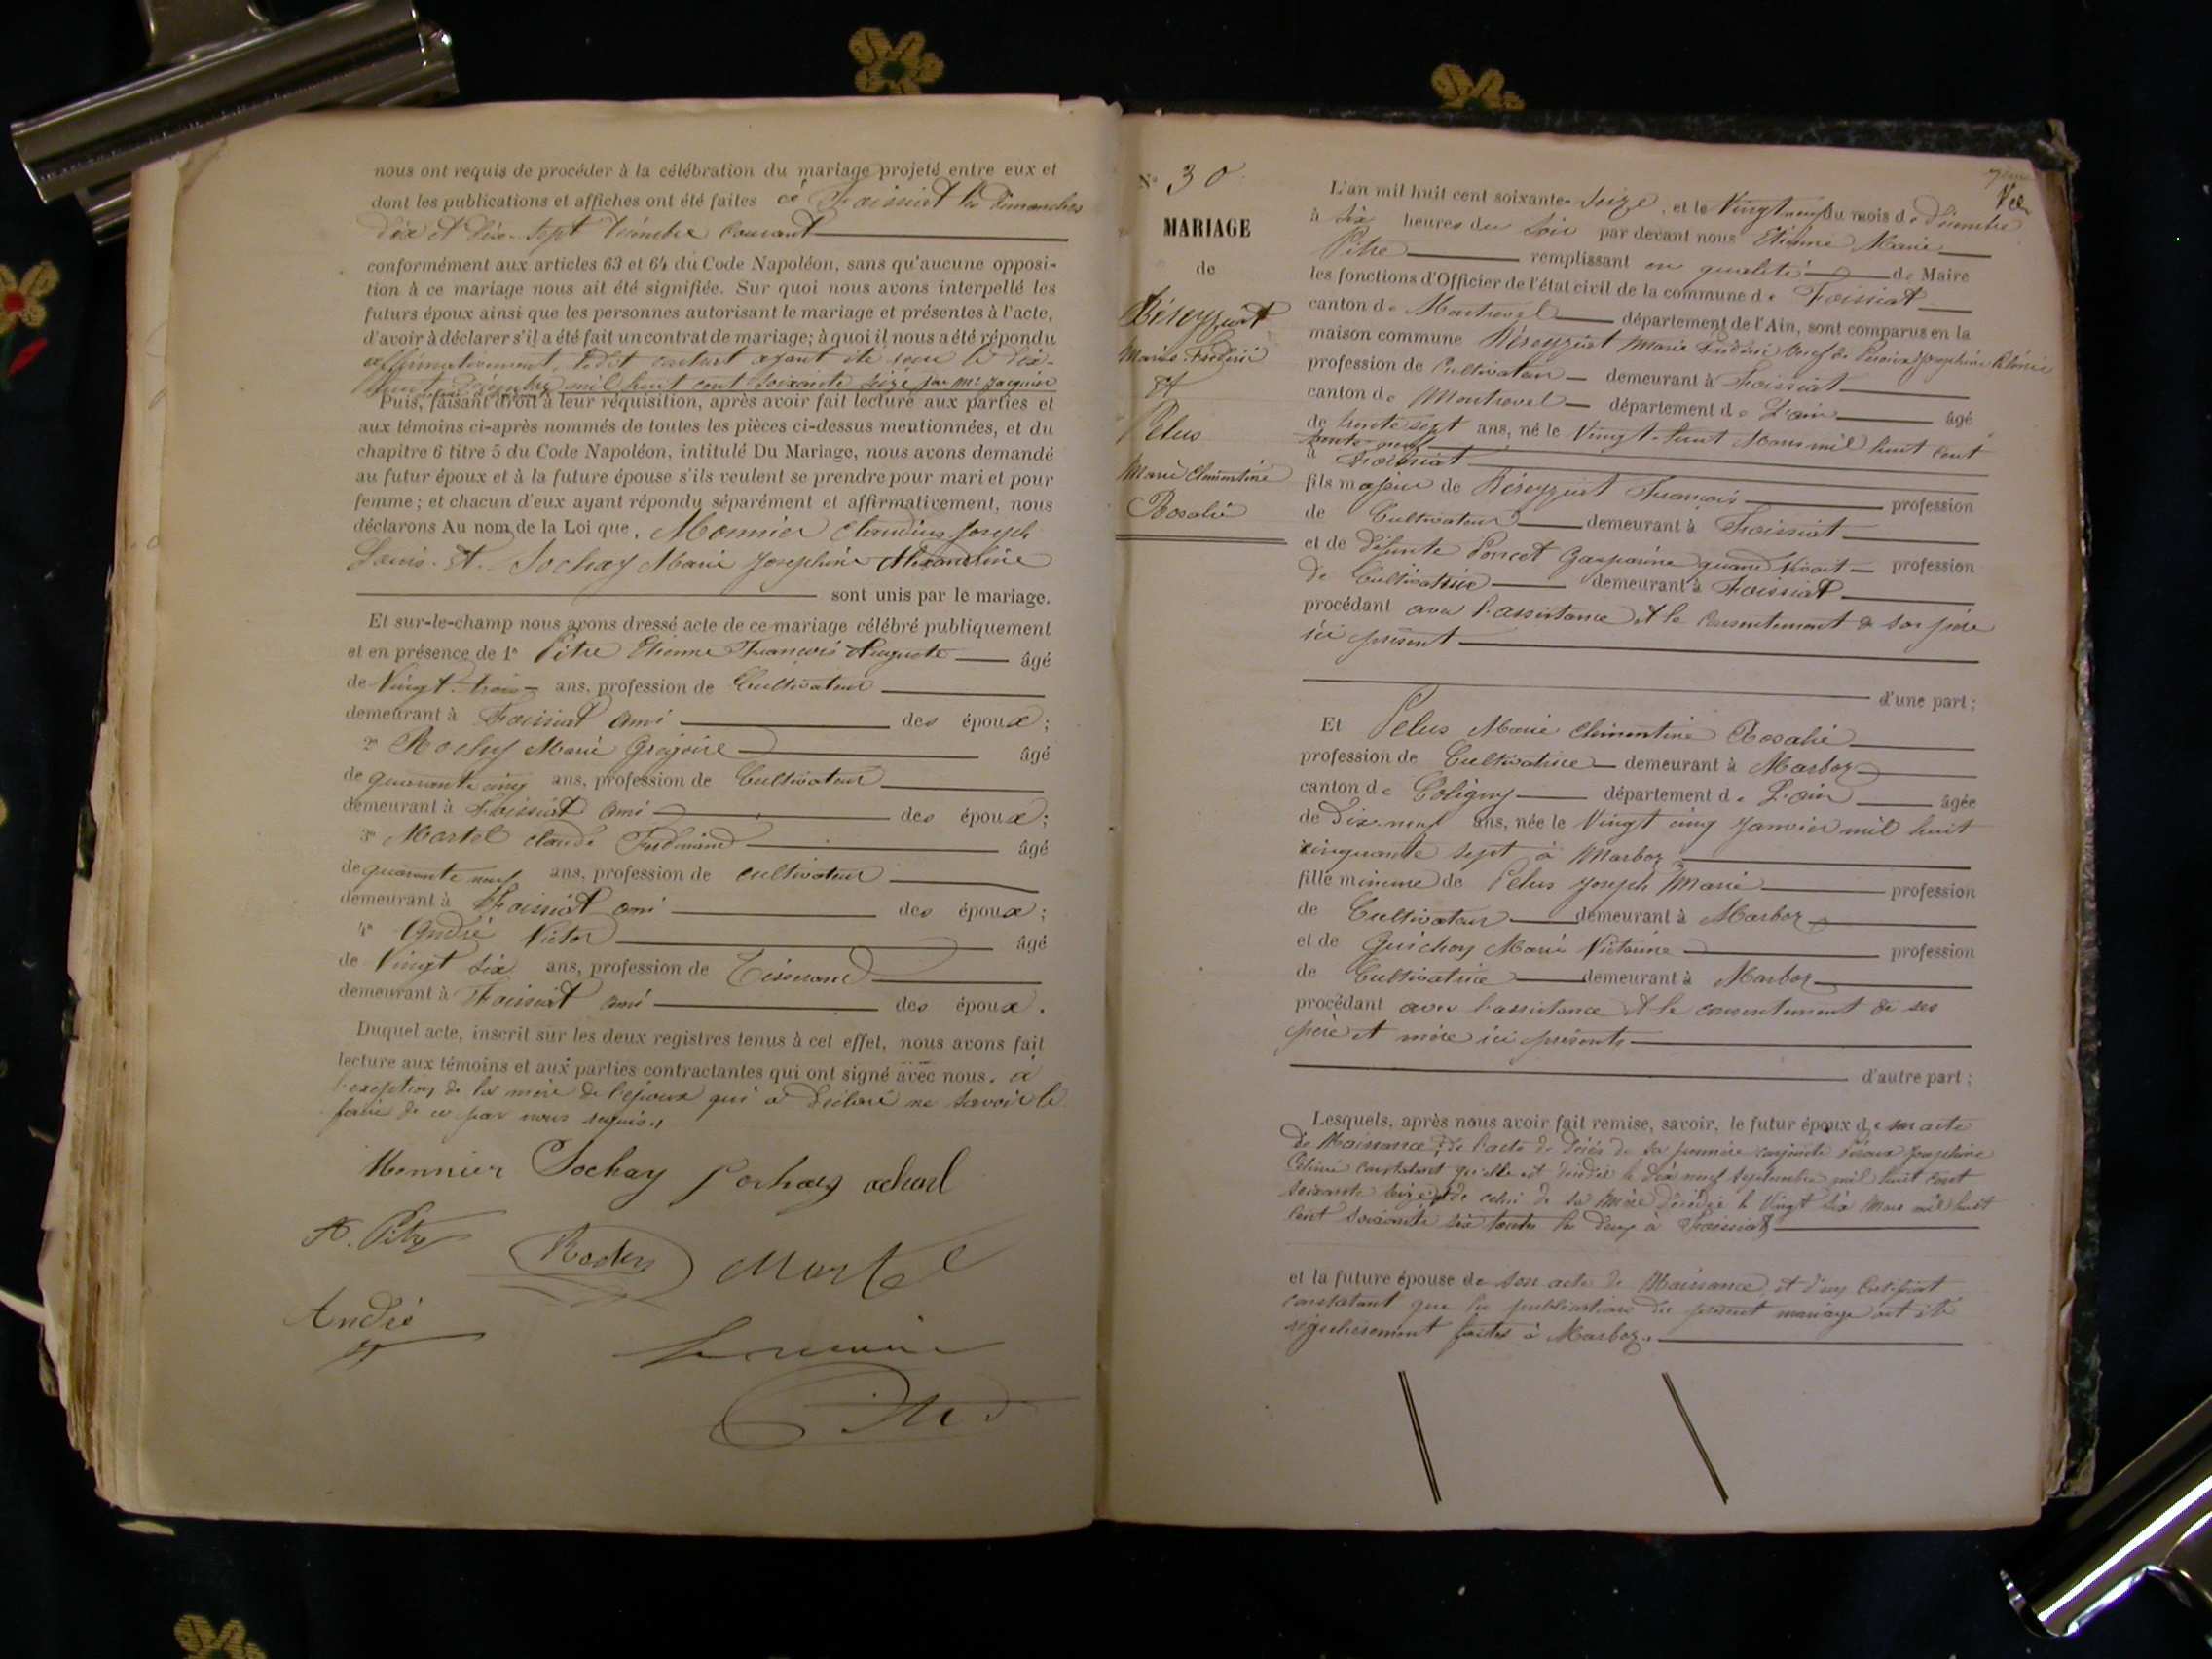 nous ont requis de procéder à la célébration du mariage projeté entre eux et
dont les publications et affiches ont été faites à Foissiat les dimanches
dix et dix-sept décembre courant
conformément aux articles 63 et 64 du Code Napoléon, sans qu'aucune opposi-
tion à ce mariage nous ait été signifiée. Sur quoi nous avons interpellé les
futurs époux ainsi que les personnes autorisant le mariage et présentes à l'acte,
d'avoir à déclarer s'il a été fait un contrat de mariage; à quoi il nous a été répondu
affirmativement, ledit contrat ayant été reçu le dix-
huit décembre mil huit cent soixante seize par Me Jacquier
Puis, faisant droit à leur réquisition, après avoir fait lecture aux parties et
aux témoins ci-après nommés de toutes les pièces ci-dessus mentionnées, et du
chapitre 6 titre 5 du Code Napoléon, intitulé Du Mariage, nous avons demandé
au futur époux et à la future épouse s'ils veulent se prendre pour mari et pour
femme; et chacun d'eux ayant répondu séparément et affirmativement, nous
déclarons Au nom de la Loi que, Monnier Claudius Joseph
Louis. Et. Sochay Marie Josephine Alexandrine
sont unis par le mariage.
Et sur-le-champ nous avons dressé acte de ce mariage célébré publiquement
et en présence de 1° Pitre Etienne François Auguste âgé
de Vingt-trois ans, profession de Cultivateur
demeurant à Foissiat ami des époux;
2° Rochy Marie Grégoire âgé
de quarante cinq ans, profession de Cultivateur
demeurant à Foissiat ami des époux;
3° Martel Claude Ferdinand âgé
de quarante neuf ans, profession de cultivateur
demeurant à Foissiat ami des époux;
4° André Victor âgé
de Vingt six ans, profession de Tisserand
demeurant à Foissiat ami des époux.
Duquel acte, inscrit sur les deux registres tenus à cet effet, nous avons fait
lecture aux témoins et aux parties contractantes qui ont signé avec nous. à
l'exception de la mère de l'époux qui a déclaré ne savoir le
faire de ce par nous requis.
Monnier Sochay Sochay
A. Pitre Martel
André
Le maire
Pitre
N° 30
MARIAGE
de
Béreyziat
Marie Frédéric
Et
Pelus
Marie Clémentine
Rosalie
L'an mil huit cent soixante-Seize, et le Vingt neuf du mois de Décembre
à Six heures du Soir par devant nous Etienne Marie
Pitre remplissant en qualité de Maire
les fonctions d'Officier de l'état civil de la commune de Foissiat
canton de Montrevel département de l'Ain, sont comparus en la
maison commune Béreyziat Marie Frédéric Veuf de Josephine
profession de Cultivateur demeurant à Foissiat
canton de Montrevel département de L'ain âgé
de trente sept ans, né le Vingt-huit Mars mil huit cent
trente-neuf
à Foissiat
fils majeur de Béreyziat François profession
de Cultivateur demeurant à Foissiat
et de défunte Poncet Gasparine quand vivait profession
de Cultivatrice demeurant à Foissiat
procédant avec l'assistance et le consentement de son père
ici présent
d'une part;
Et Pelus Marie Clémentine Rosalie
profession de Cultivatrice demeurant à Marboz
canton de Coligny département de L'ain âgée
de Dix-neuf ans, née le Vingt cinq Janvier mil huit
cinquante sept à Marboz
fille mineure de Pelus Joseph Marie profession
de Cultivateur demeurant à Marboz
et de Guichon Marie Victorine profession
de Cultivatrice demeurant à Marboz
procédant avec l'assistance et le consentement de ses
père et mère ici présents
d'autre part;
Lesquels, après nous avoir fait remise, savoir, le futur époux de son acte
de Naissance, de l'acte de décès de sa première conjointe Josephine
constatant qu'elle est décédée le dix neuf septembre mil huit cent
soixante seize et de celui de sa mère décédée le Vingt six Mars mil huit
cent soixante six toutes les deux à Foissiat
et la future épouse de son acte de Naissance, et d'un Certificat
constatant que les publications du présent mariage ont été
régulièrement faites à Marboz.